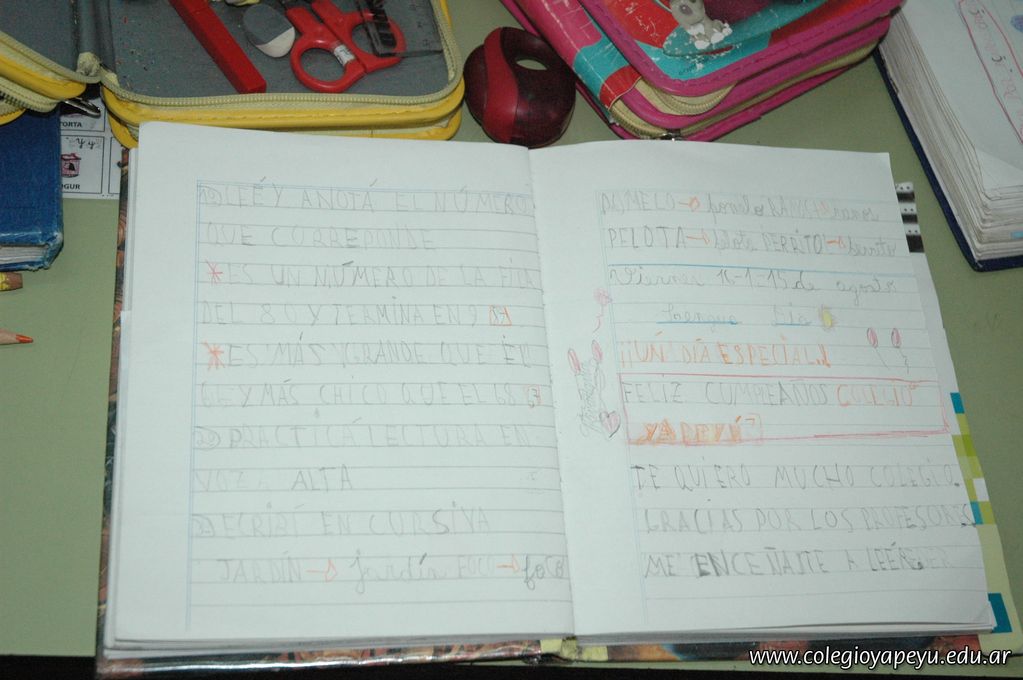 TORTA
GUR
1) LEÉ Y ANOTÁ EL NÚMERO
QUE CORREPONDE
* ES UN NÚMERO DE LA FILA
DEL 80 Y TERMINA EN 9
* ES MÁS GRANDE QUE EL
66 Y MÁS CHICO QUE EL 68 67
2) PRACTICÁ LECTURA EN
VOZ ALTA
3) ECRIBÍ EN CURSIVA
JARDÍN → jardín FOCO → foco
POMELO → pomelo
PELOTA → pelota PERRITO → perrito
Viernes de agosto
Lengua Día
¡¡UN DÍA ESPECIAL!!
FELIZ CUMPLEAÑOS COLEGIO
YAPEYÚ
TE QUIERO MUCHO COLEGIO.
GRACIAS POR LOS PROFESORES
ME ENCEÑASTE A LEÉR
www.colegioyapeyu.edu.ar